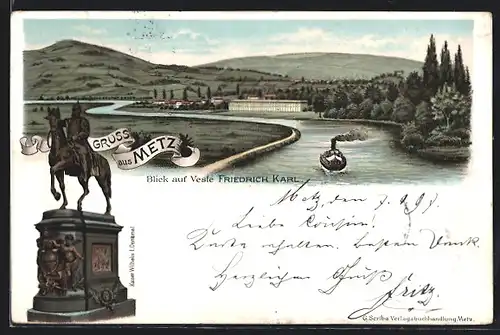 GRUSS
aus METZ
Blick auf Veste FRIEDRICH KARL.
Kaiser Wilhelm I. Denkmal.
Metz, den
Liebe Cousine!
Karte erhalten. Besten Dank.
Herzlichen Gruß
Fritz.
G. Scriba Verlagsbuchhandlung, Metz.